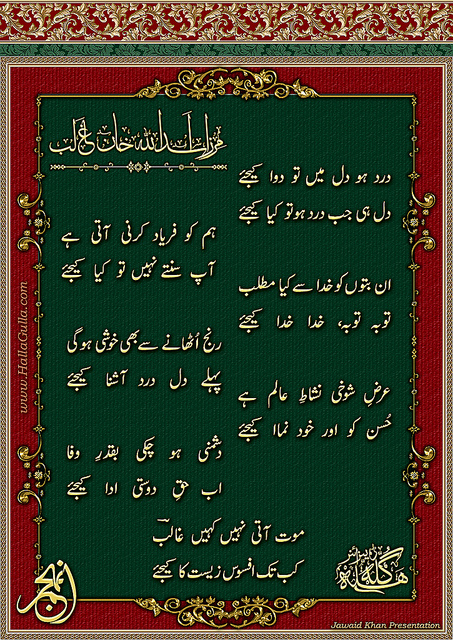 مرزا اسد اللہ خان غالب
درد ہو دل میں تو دوا کیجئے
دل ہی جب درد ہو تو کیا کیجئے
ہم کو فریاد کرنی آتی ہے
آپ سنتے نہیں تو کیا کیجئے
ان بتوں کو خدا سے کیا مطلب
توبہ توبہ، خدا خدا کیجئے
رنج اُٹھانے سے بھی خوشی ہوگی
پہلے دل درد آشنا کیجئے
عرضِ شوخی نشاطِ عالم ہے
حُسن کو اور خود نما کیجئے
دشمنی ہو چکی بقدرِ وفا
اب حقِ دوستی ادا کیجئے
موت آتی نہیں کہیں غالبؔ
کب تک افسوس زیست کا کیجئے
www.HallaGulla.com
Jawaid Khan Presentation